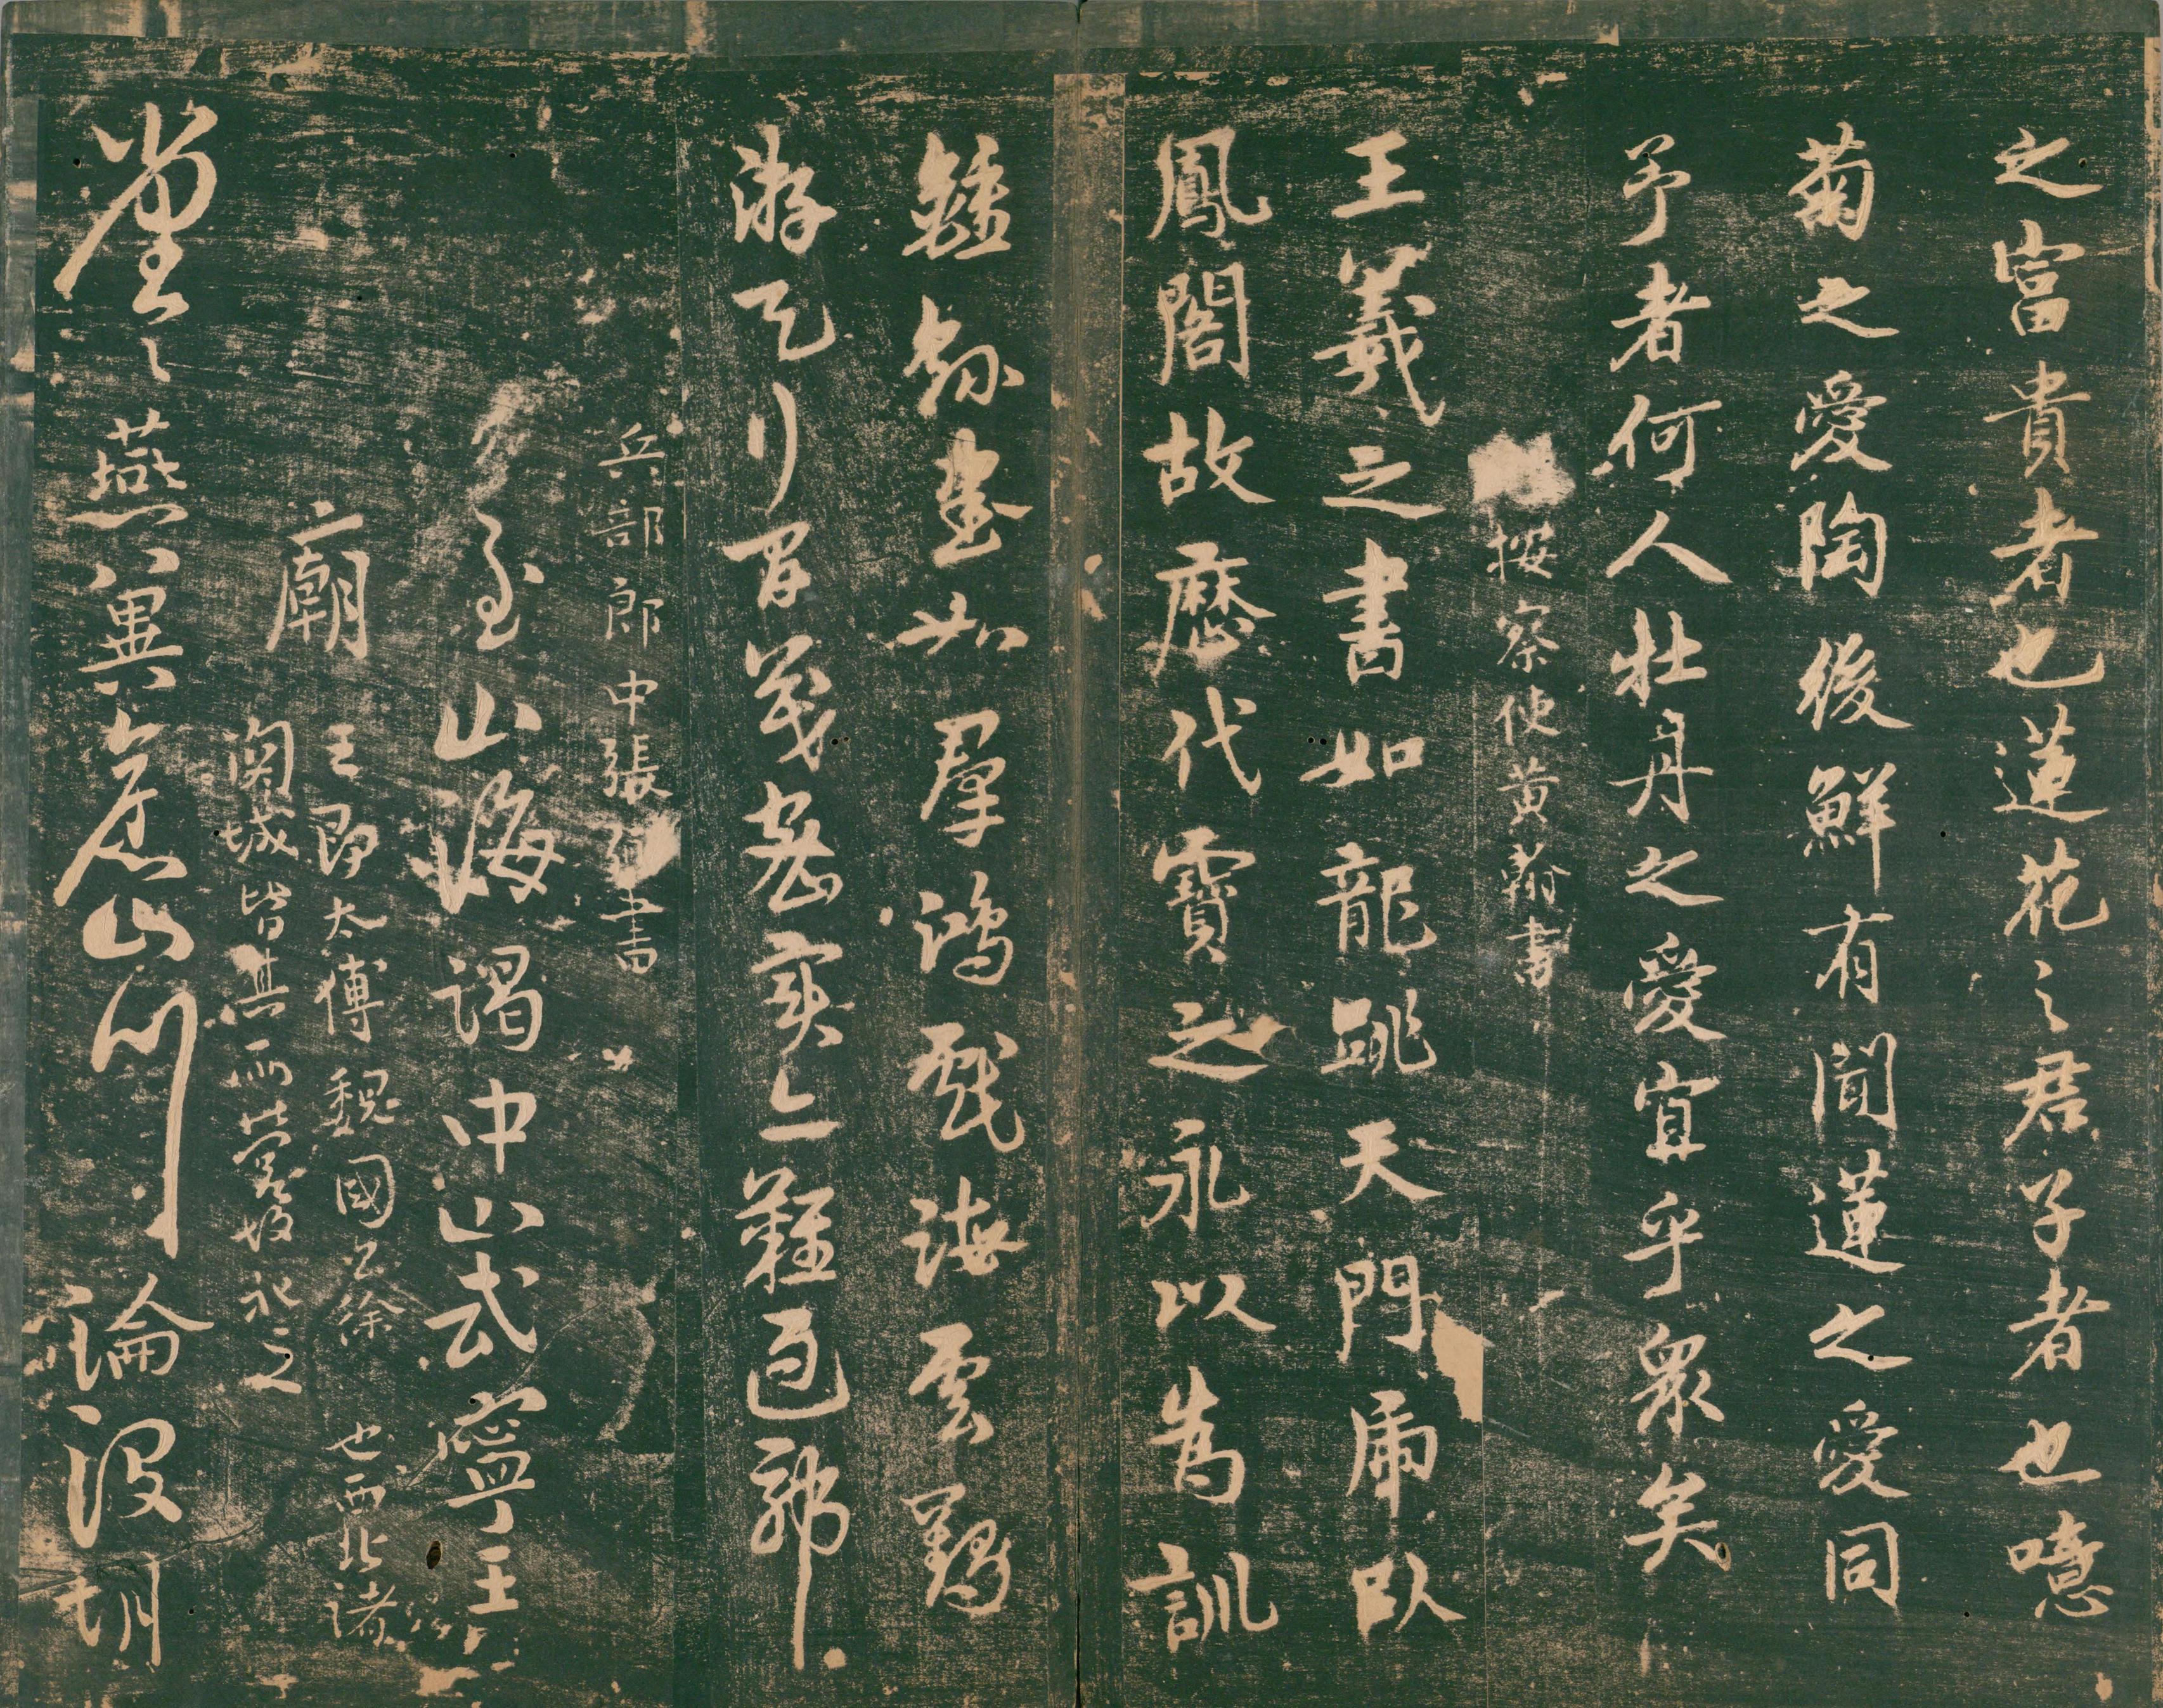 之富貴者也蓮花之君子者也噫
菊之愛陶後鮮有聞蓮之愛同
予者何人牡丹之愛宜乎眾矣
按察使黃翰書
王羲之書如龍跳天門虎臥
鳳閣故歷代寶之永以為訓
鍾繇書如羣鴻戲海雲鶴
游天行間茂密實亦難過耶
兵部郎中張書
至山海謁中山武寧王
廟
王即太傅魏國公徐也西北諸
關城皆其所營故祀之
堂〻燕翼壯山川論沒胡